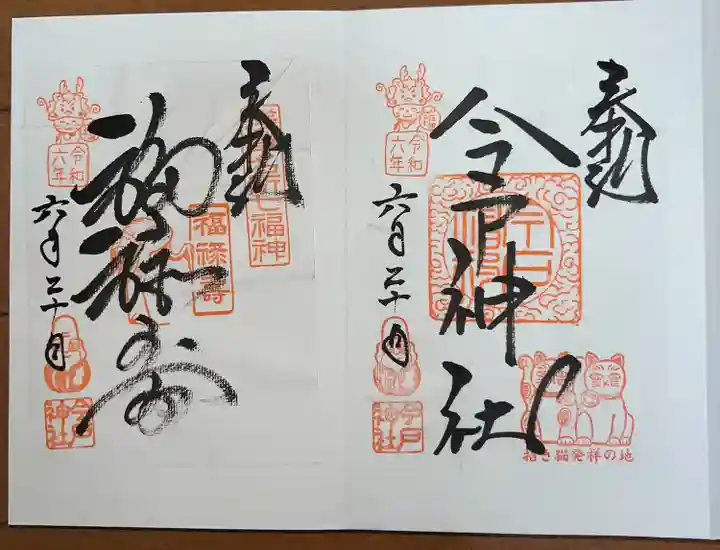 奉拝
今戸神社
令和
六年
六月二十日
今戸
神社
招き猫発祥の地
奉拝
七福神
福禄寿
福禄寿
令和
六年
六月二十日
今戸
神社